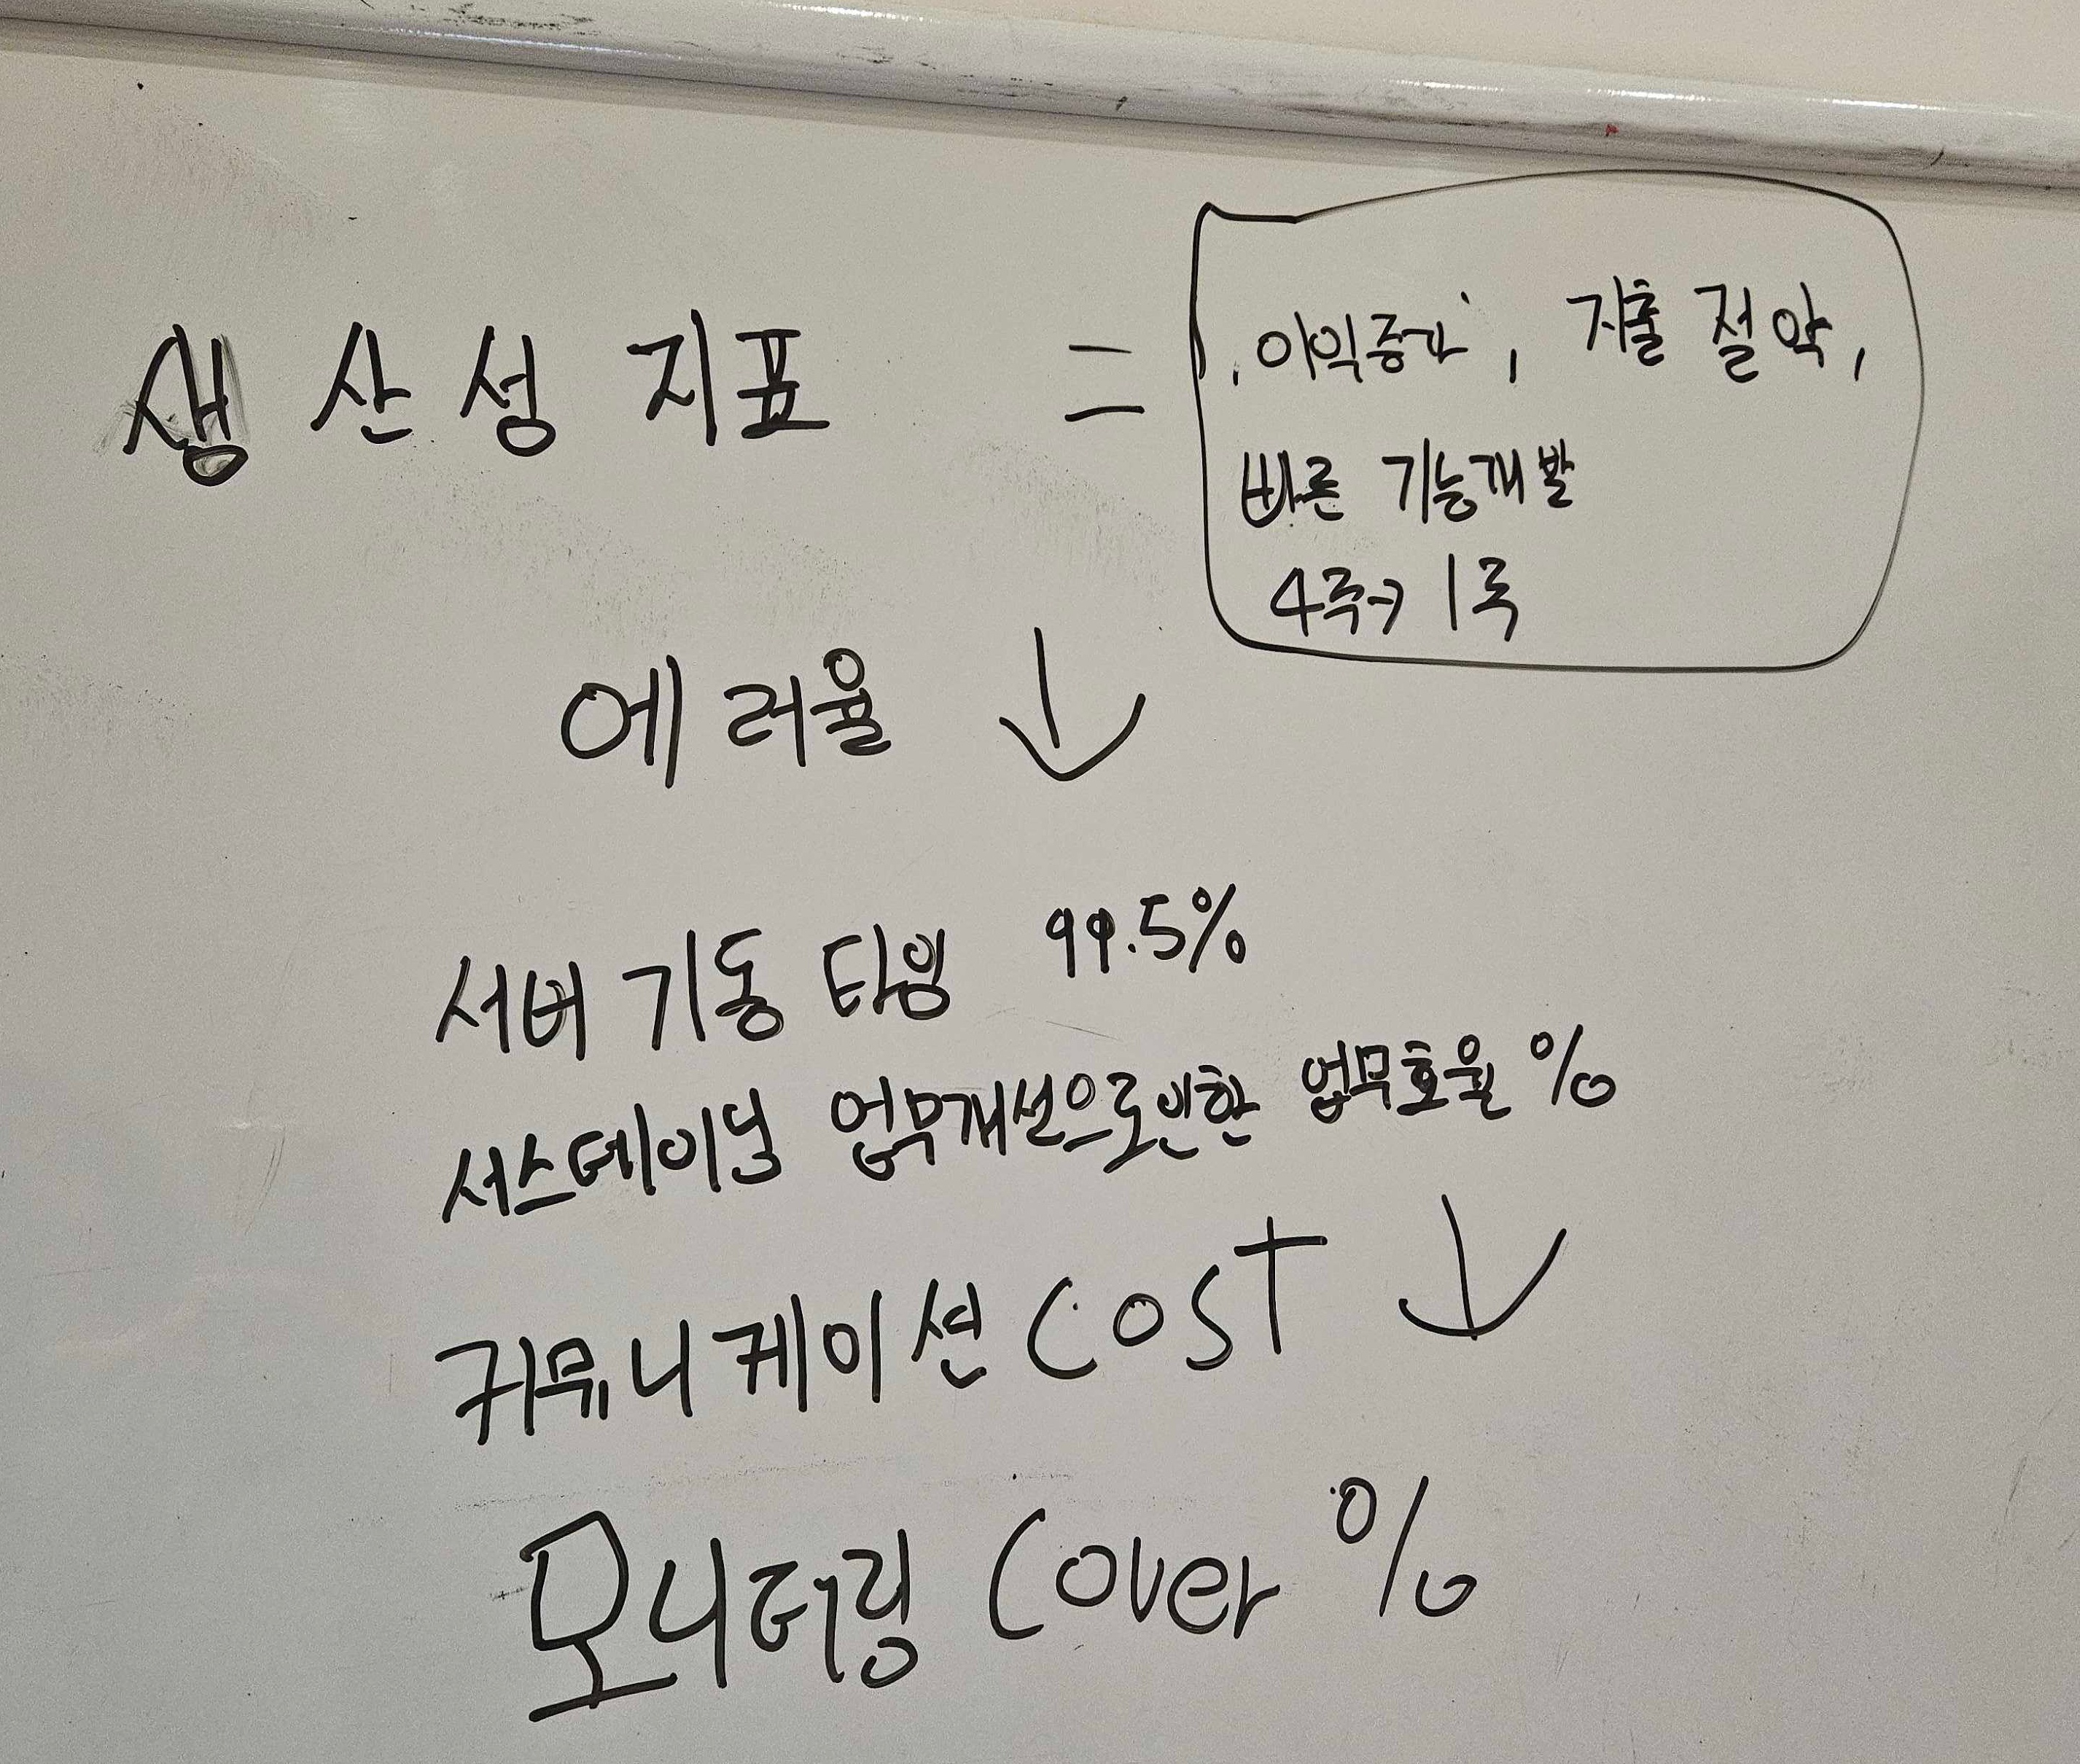 생산성 지표 =
이익증가, 지출 절약,
빠른 기능개발
4주→ 1주
에러율 ↓
서버 기동 타임 99.5%
서스테이닝 업무개선으로인한 업무효율 %
커뮤니케이션 COST ↓
모니터링 Cover %